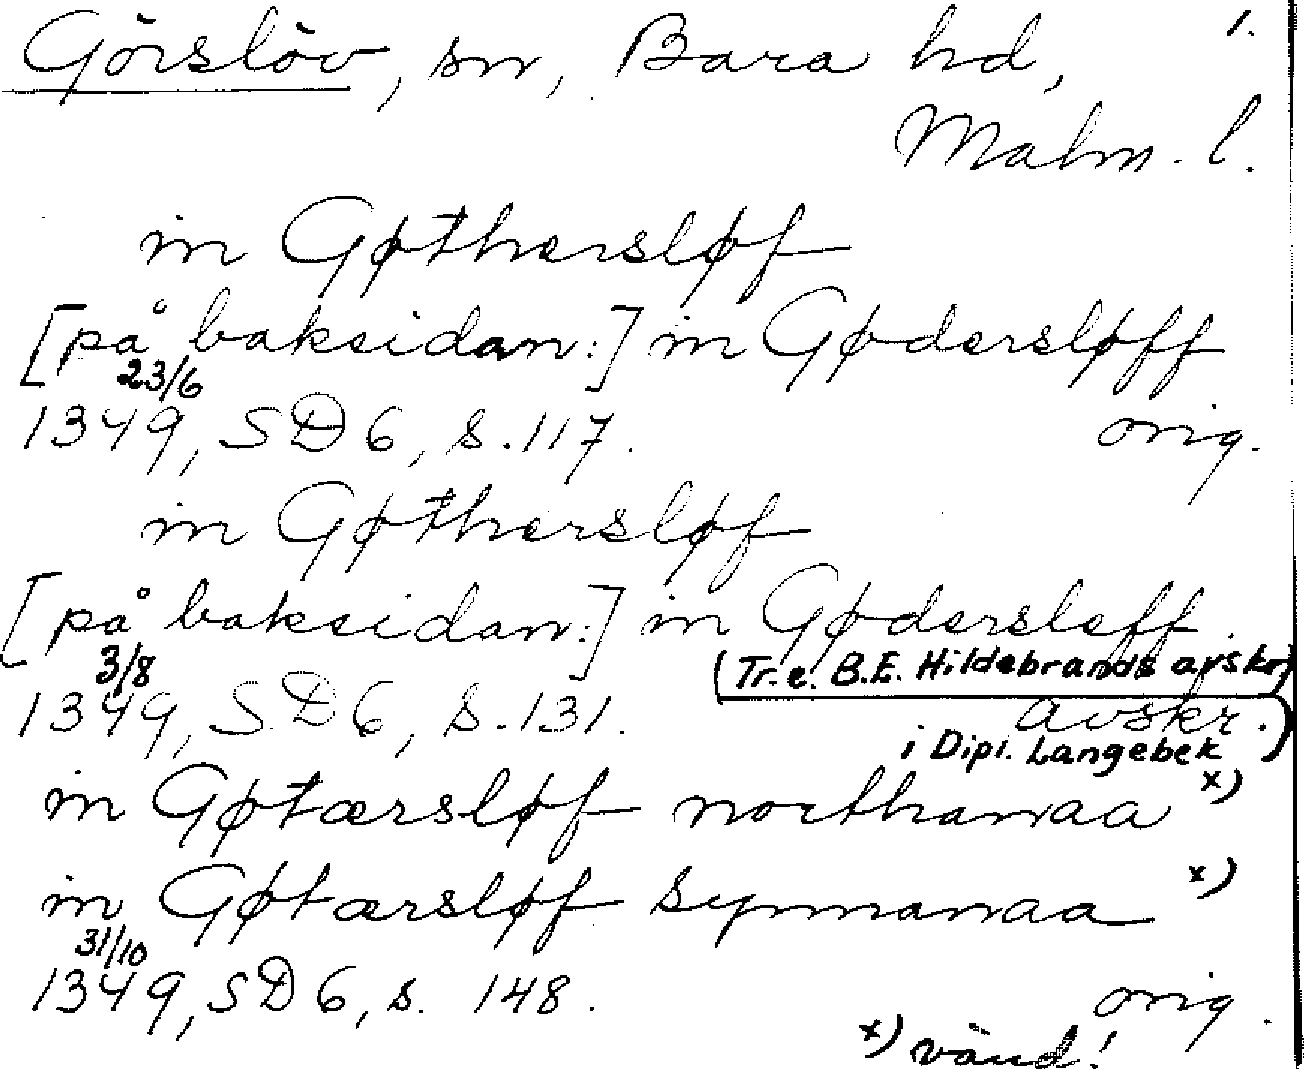 Görslöv, sn, Bara hd, 1.
Malm. l.
in Gøthersløf
[på baksidan:] in Gødersløff
23/6
1349, SD 6, s. 117. orig.
in Gøthersløf
[på baksidan:] in Gødersleff.
3/8 (Tr. e. B.E. Hildebrands avskr
1349, SD 6, s. 131. avskr.
i Dipl. Langebek)
in Gøtærsløf northanaa x)
in Gøtærsløf synnanaa x)
31/10
1349, SD 6, s. 148. orig.
x) vänd!